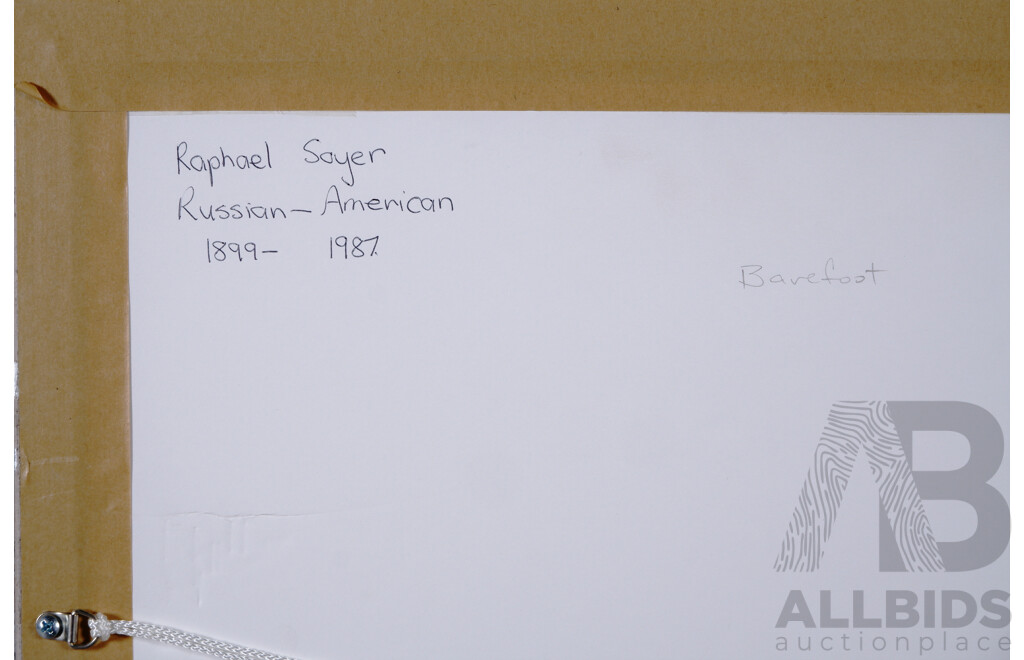 Raphael Soyer
Russian - American
1899 - 1987.
Barefoot
AB
ALLBIDS
auctionplace